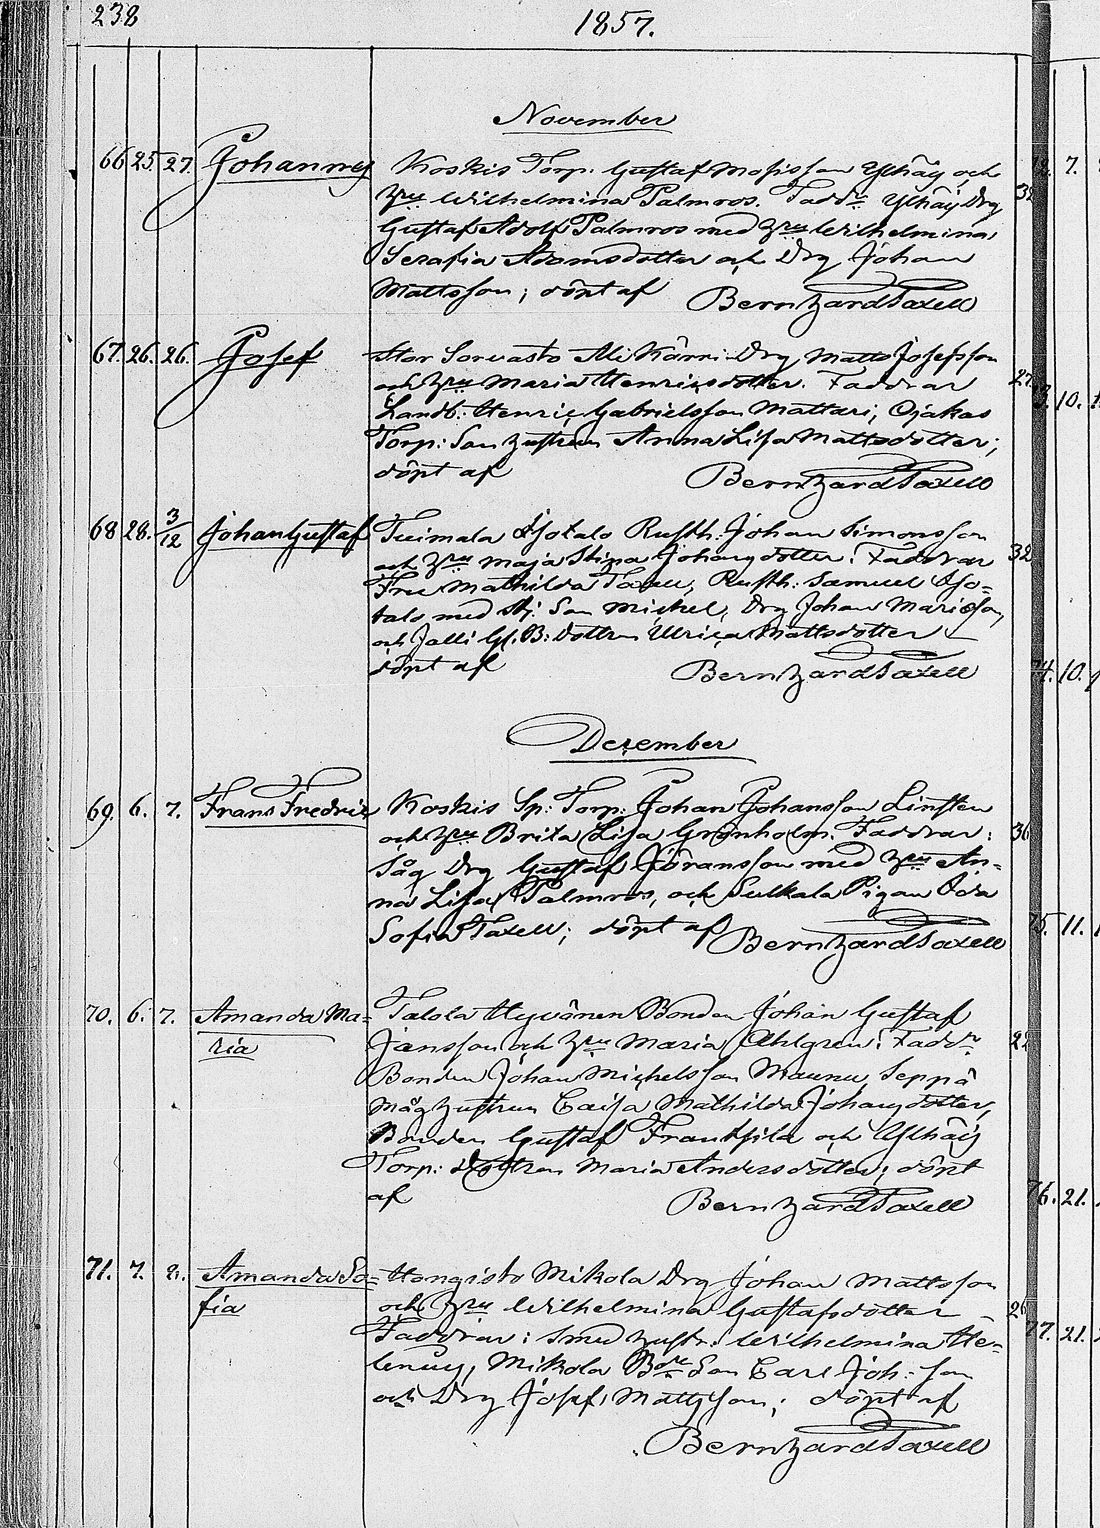 238
1857.
November
66 25. 27. Johannes Koskis Torp. Gustaf Mosisson Ylhäis och
hru Wilhelmina Palmros. Faddr Ylhäis Drg 32
Gustaf Adolf Palmros med hru Wilhelmina
Serafia Adamsdotter och Drg Johan
Mattsson; döpt af Bernhard Taxell
67. 26. 26. Josef Stor Sorvasto Ali Kärri Drg Matts Josefsson
och hru Maria Henricsdotter. Faddrar 27
Landb: Henric Gabrielsson Mattari, Ojakas
Torp: Son hustrun Anna Lisa Mattsdotter;
döpt af Bernhard Taxell
68 28. 3/12 Johan Gustaf Tuimala Isotalo Rusth: Johan Simonsson
och hru Maja Stina Johansdotter. Faddrar 32
Fru Mathilda Taxell, Rusth: Samuel Iso=
talo med Son Michel, Drg Johan Mariæson,
och Jalli dottren Ulrica Mattsdotter
döpt af Bernhard Taxell
December
69. 6. 7. Frans Fredric Koskis Sp: Torp: Johan Johansson Linsten
och hru Brita Lisa Grönholm. Faddrar: 36
Såg Drg Gustaf Jöransson med hru An-
na Lisa Palmros, och Sulkala Pigan Oda
Sofia Taxell; döpt af Bernhard Taxell
70. 6. 7. Amanda Ma= Talola Hyvönen Bonden Johan Gustaf
ria Jansson och hru Maria Ahlgren. Faddr 22
Bonden Johan Michelsson Maunu, Seppä
Måg hustrun Caisa Mathilda Johansdotter,
Bonden Gustaf Franssila och Ylhäis
Torp: dottren Maria Andersdotter; döpt
af Bernhard Taxell
71. 7. 8. Amanda So= Hongisto Mikola Drg Johan Mattsson
fia och hru Wilhelmina Gustafsdotter 26
Faddrar: Smed hustr: Wilhelmina He-
lenius, Mikola Bde Son Carl Joh:son
och Drg Josef Mattsson; döpt af
Bernhard Taxell
7.
10.
74. 10.
75. 11.
76. 21.
77. 21.